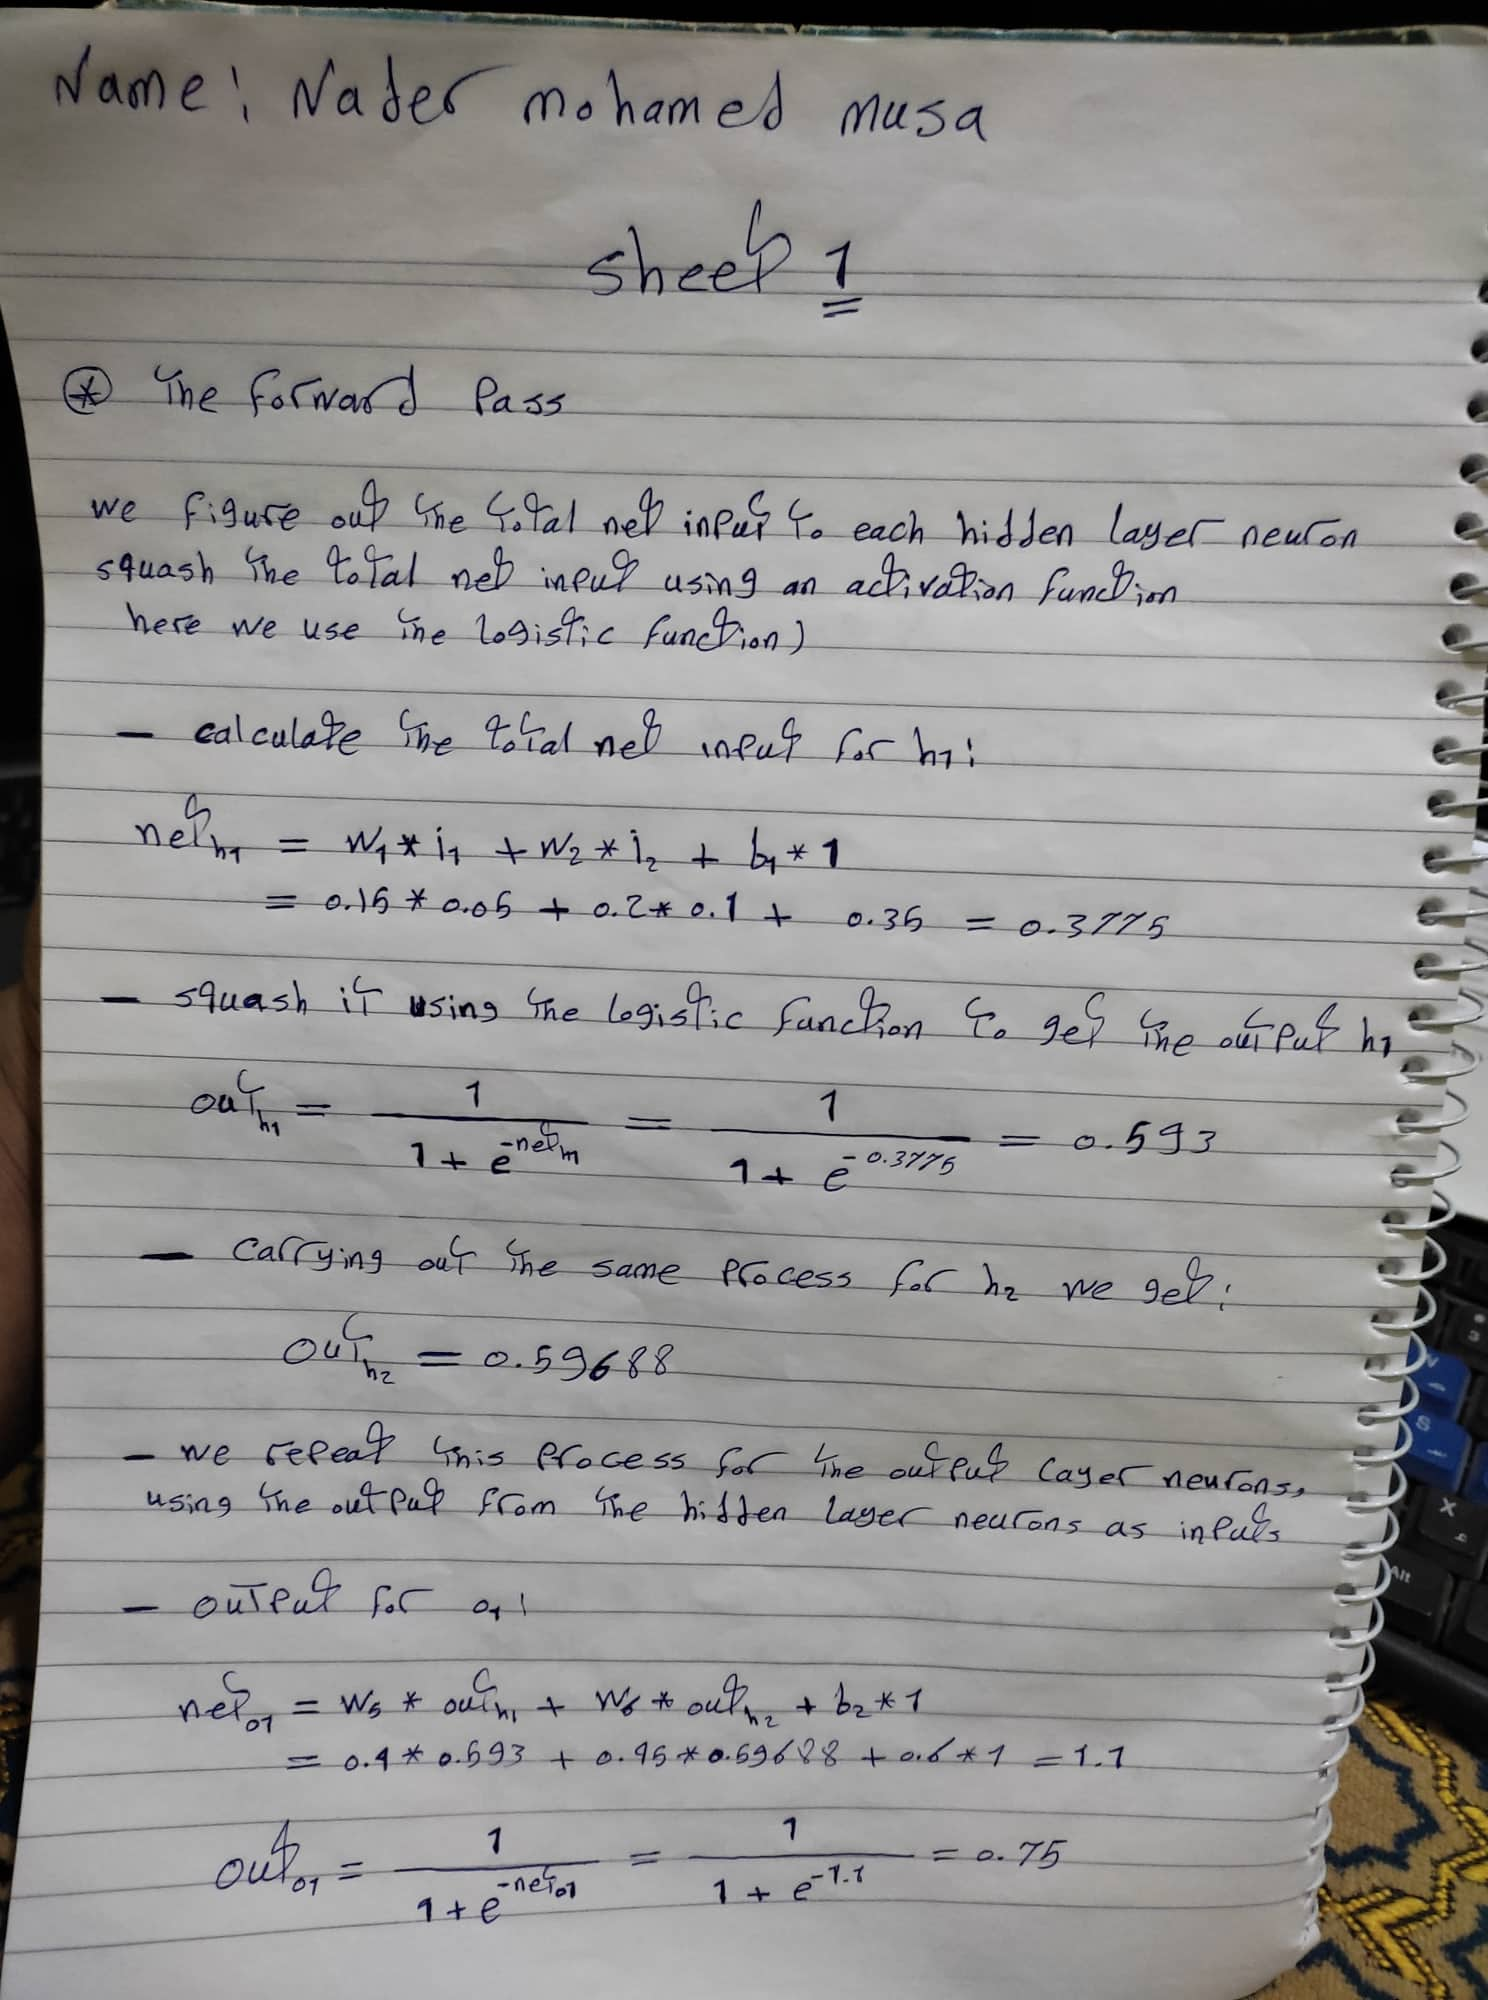 Name: Nader mohamed musa
sheet 1
* The forward Pass
we figure out the total net input to each hidden layer neuron
squash the total net input using an activation function
here we use the logistic function)
- calculate the total net input for h1:
net_h1 = w1 * i1 + w2 * i2 + b1 * 1
= 0.15 * 0.05 + 0.2 * 0.1 + 0.35 = 0.3775
- squash it using the logistic function to get the output h1
out_h1 = 1 / (1 + e^-net_h1) = 1 / (1 + e^-0.3775) = 0.593
- carrying out the same process for h2 we get:
out_h2 = 0.59688
- we repeat this process for the output layer neurons,
using the output from the hidden layer neurons as inputs
- output for o1:
net_o1 = w5 * out_h1 + w6 * out_h2 + b2 * 1
= 0.4 * 0.593 + 0.45 * 0.59688 + 0.6 * 1 = 1.1
out_o1 = 1 / (1 + e^-net_o1) = 1 / (1 + e^-1.1) = 0.75
S
X
Alt